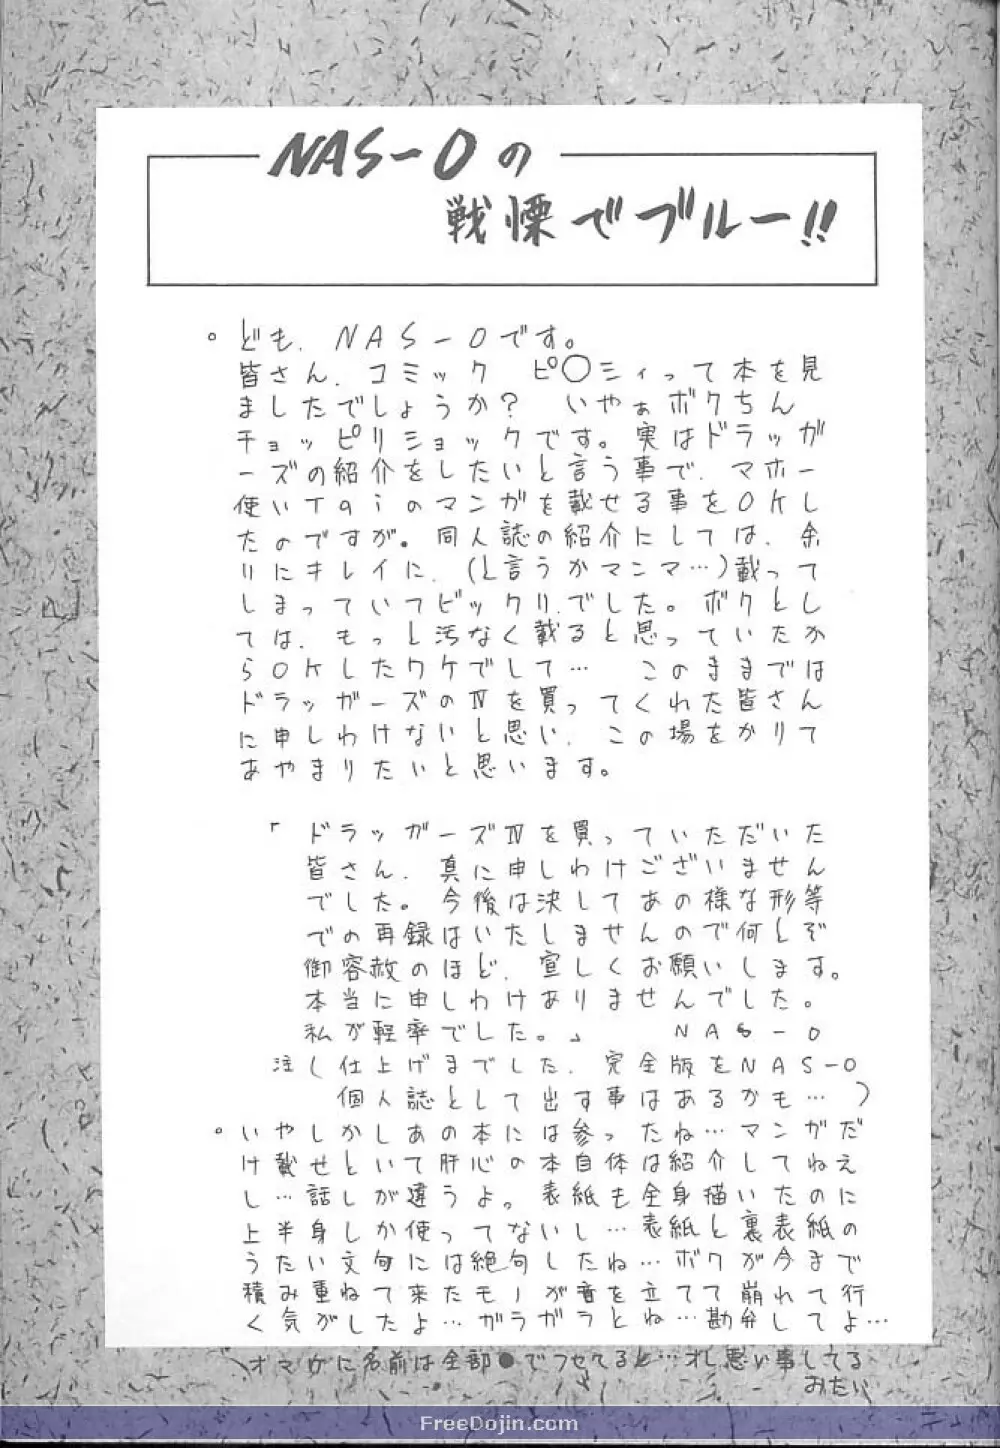 NAS-Oの
戦慄でブルー!!
。ども、NAS-Oです。
皆さん、コミック ピ○シィって本を見
ましたでしょうか? いやぁボクちん
チョッピリショックです。実はドラッガ
ーズの紹介をしたいと言う事で、マホー
使いTaiのマンガを載せる事をOKし
たのですが。同人誌の紹介にしては、余
りにキレイに、(と言うかマンマ…)載って
しまっていてビックリ、でした。ボクとし
ては、もっと汚なく載ると思っていたか
らOKしたワケでして… このままでは
ドラッガーズのⅣを買ってくれた皆さん
に申しわけないと思い、この場をかりて
あやまりたいと思います。
「ドラッガーズⅣを買っていただいた
皆さん、真に申しわけございません
でした。今後は決してあの様な形等
での再録はいたしませんので何とぞ
御容赦のほど、宜しくお願いします。
本当に申しわけありませんでした。
私が軽率でした。」 NAS-O
注(仕上げまでした、完全版をNAS-O
個人誌として出す事はあるかも…)
。いやしかしあの本には参ったね…マンガだ
け載せといて肝心の本自体は紹介してねえ
し…話しが違うよ。表紙も全身描いたのに
上半身しか使ってないし…表紙と裏表紙の
うたい文句には絶句したね…ボクが今まで
積み重ねて来たモノが音を立てて崩れて行
く気がしたよ…ガラガラとね…勘弁してよ…
オマケに名前は全部●でフせてると…オレ悪い事してる
みたい
FreeDojin.com